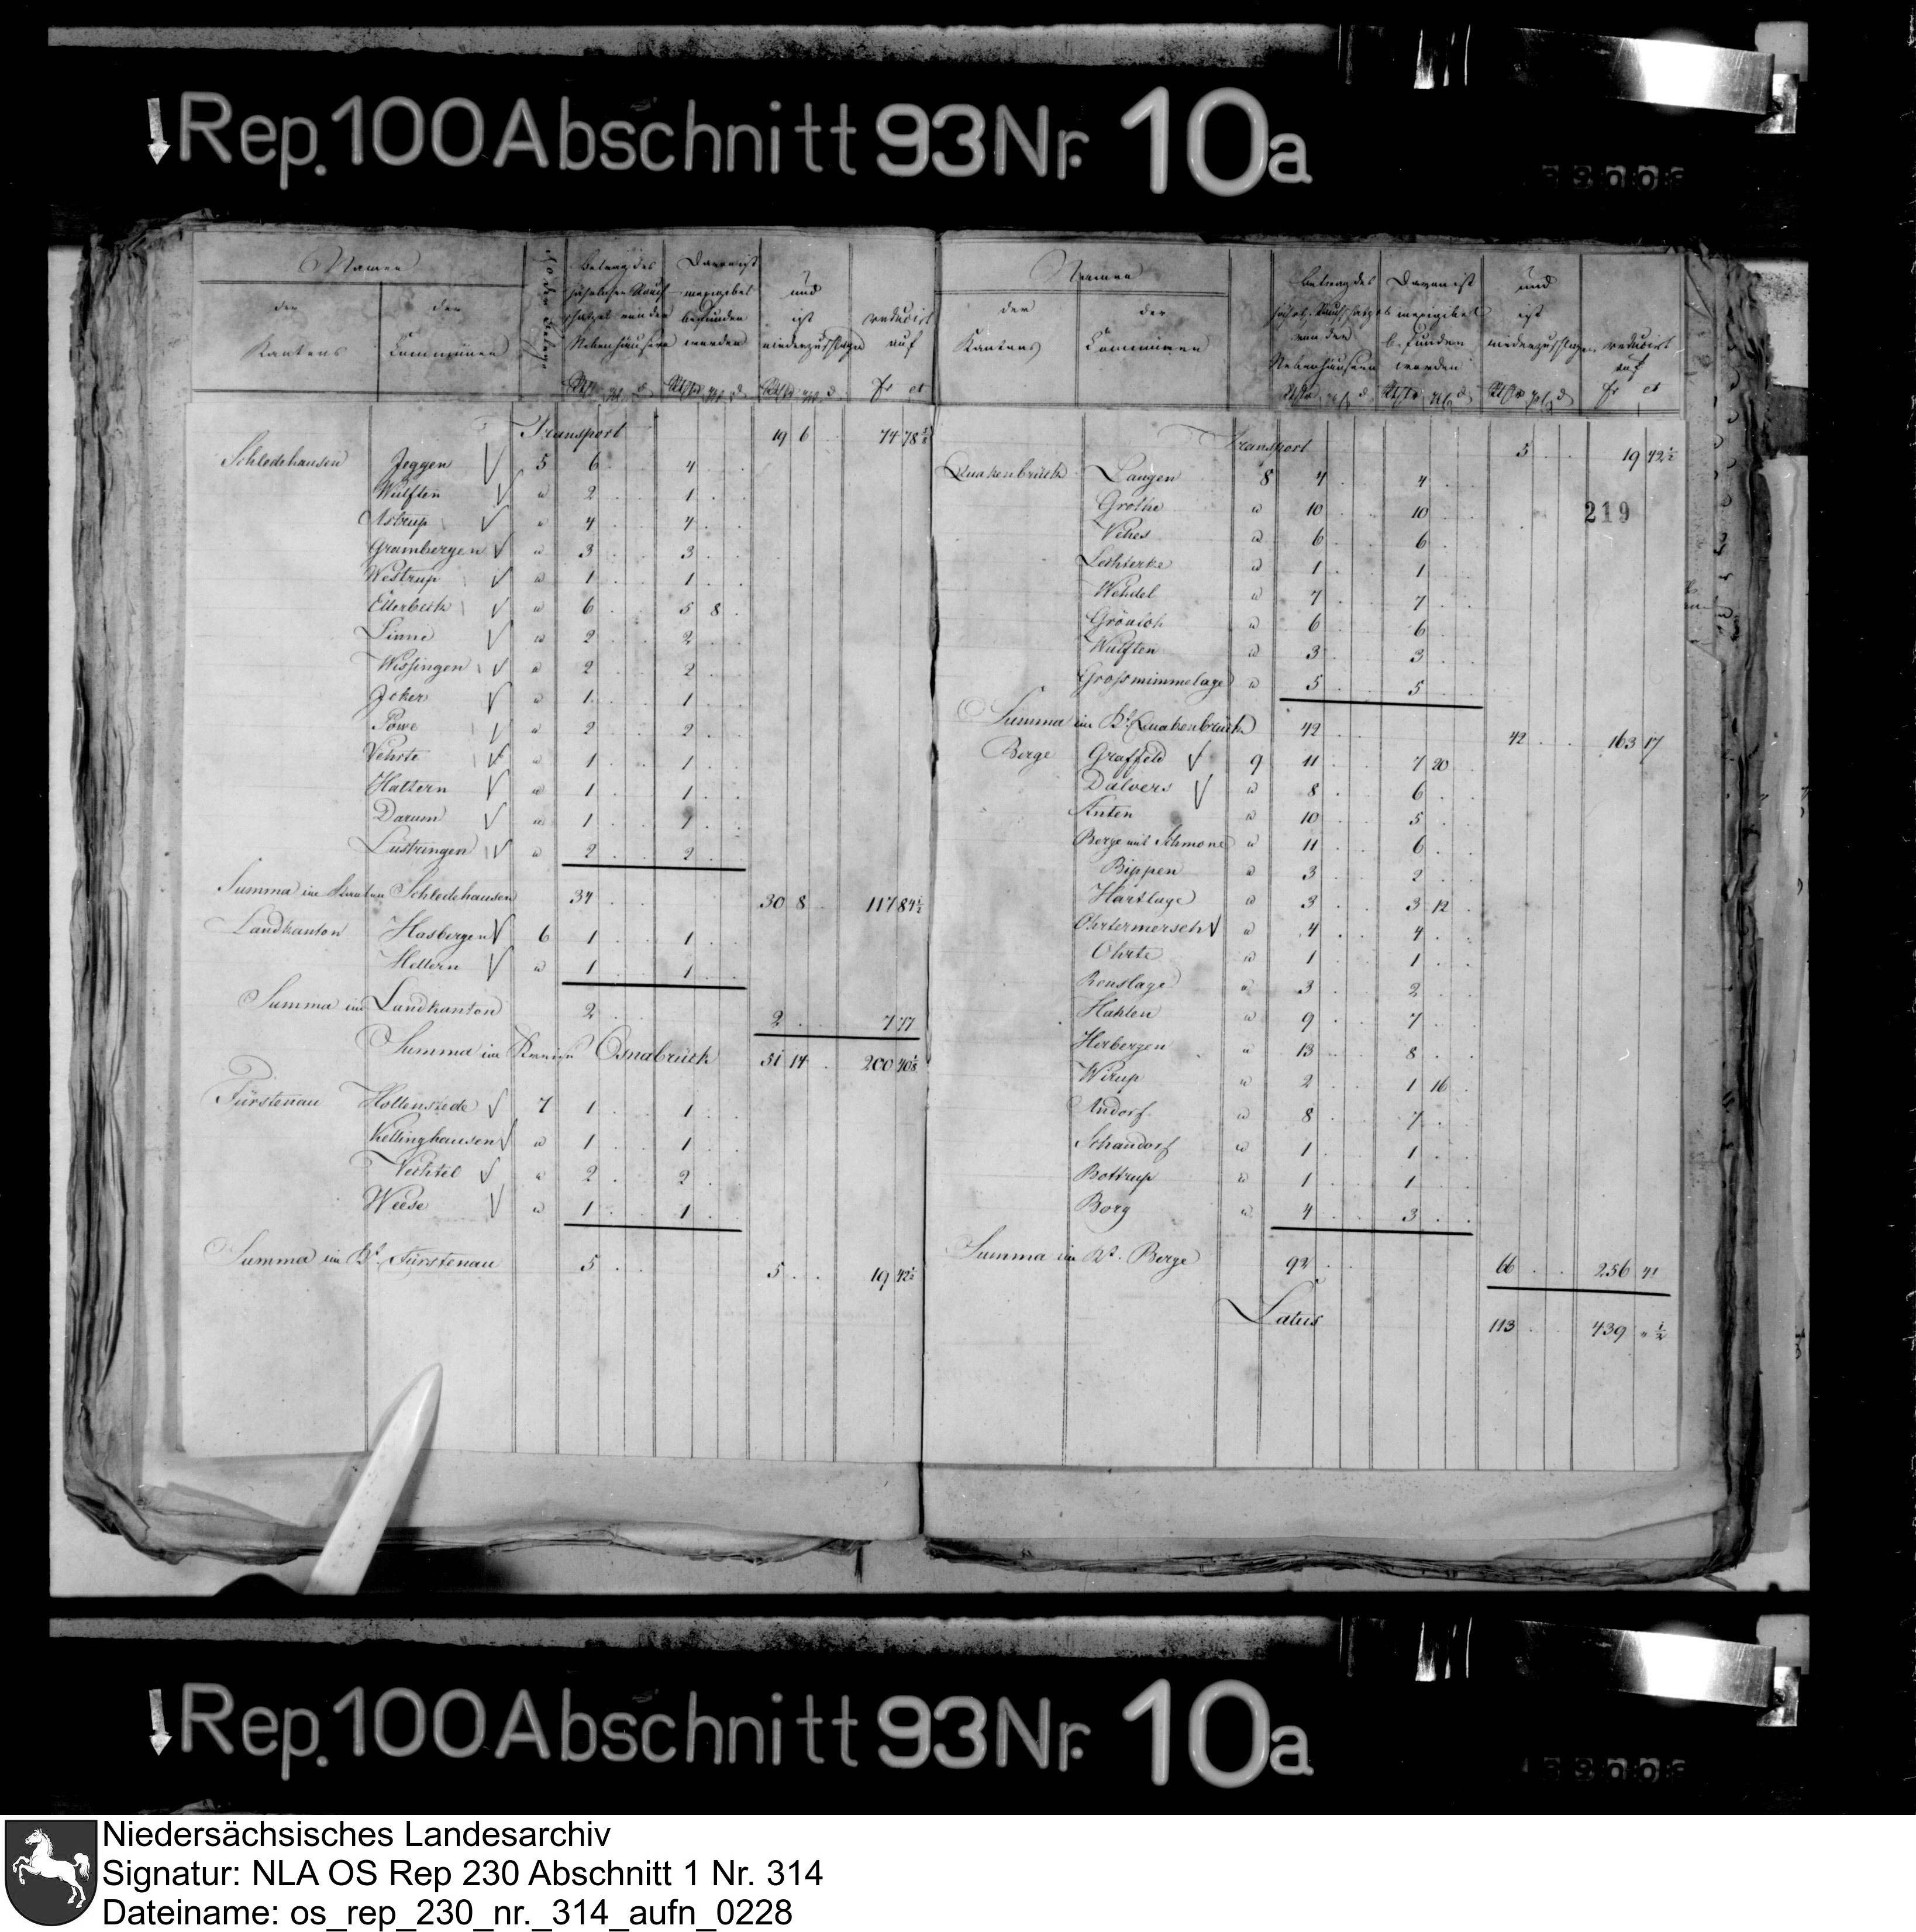 Rep. 100 Abschnitt 93 Nr. 10a
Namen
der Kantons
der Communen
No der Belege
Betrag des jährlichen Rauchschatzes von den Nebenhäusern
Davon ist inexigibel befunden worden
und ist niederzuschlagen
reducirt auf
fr ct
Transport 19 6 . 74 78½
Schledehausen Jeggen √ 5 6 . . 4 . .
Wulften √ " 2 . . 1 . .
Astrup √ " 4 . . 4 . .
Grambergen √ " 3 . . 3 . .
Westrup √ " 1 . . 1 . .
Ellerbeck √ " 6 . . 5 8 .
Linne √ " 2 . . 2 . .
Wissingen √ " 2 . . 2 . .
Jeker √ " 1 . . 1 . .
Powe √ " 2 . . 2 . .
Vehrte √ " 1 . . 1 . .
Haltern √ " 1 . . 1 . .
Darum √ " 1 . . 1 . .
Lüstringen √ " 2 . . 2 . .
Summa im Kanton Schledehausen 34 . . 30 8 . 117 84½
Landkanton Hasbergen √ 6 1 . . 1 . .
Hellern √ " 1 . . 1 . .
Summa im Landkanton 2 . . 2 . . 7 77
Summa im Kreise Osnabrück 51 14 . 200 40
Fürstenau Hollenstede √ 7 1 . . 1 . .
Kettinghausen √ " 1 . . 1 . .
Vechtel √ " 2 . . 2 . .
Weese √ " 1 . . 1 . .
Summa im Kt. Fürstenau 5 . . 5 . . 19 42½
Namen
der Kantons
der Communen
Betrag des jährl. Rauchschatzes von den Nebenhäusern
Davon ist inexigibel befunden worden
und ist niederzuschlagen
reducirt auf
fr ct
Transport 5 . . 19 42½
219
Quakenbrück Langen 8 4 . . 4 . .
Grothe " 10 . . 10 . .
Vehes " 6 . . 6 . .
Lechterke " 1 . . 1 . .
Wehdel " 7 . . 7 . .
Grönloh " 6 . . 6 . .
Wulften " 3 . . 3 . .
Grossmimmelage " 5 . . 5 . .
Summa im Kt. Quakenbrück 42 . . 42 . . 163 17
Berge Graffeld √ 9 11 . . 7 20 .
Dalvers √ " 8 . . 6 . .
Anten " 10 . . 5 . .
Berge mit Schmone " 11 . . 6 . .
Bippen " 3 . . 2 . .
Hartlage " 3 . . 3 12 .
Ohrtermersch √ " 4 . . 4 . .
Ohrte " 1 . . 1 . .
Renslage " 3 . . 2 . .
Hahlen " 9 . . 7 . .
Herbergen " 13 . . 8 . .
Wirup " 2 . . 1 16 .
Andorf " 8 . . 7 . .
Schandorf " 1 . . 1 . .
Bottrup " 1 . . 1 . .
Borg " 4 . . 3 . .
Summa im Kt. Berge 92 . . 66 . . 256 41
Latus 113 . . 439 " ½
Rep. 100 Abschnitt 93 Nr. 10a
Niedersächsisches Landesarchiv
Signatur: NLA OS Rep 230 Abschnitt 1 Nr. 314
Dateiname: os_rep_230_nr._314_aufn_0228